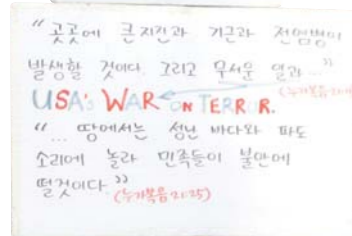 "곳곳에 큰 지진과 기근과 전염병이
발생할 것이다. 그리고 무서운 일과..."
(누가복음 21:11)
USA's WAR ON TERROR.
"... 땅에서는 성난 바다와 파도
소리에 놀라 민족들이 불안에
떨것이다."
(누가복음 21:25)